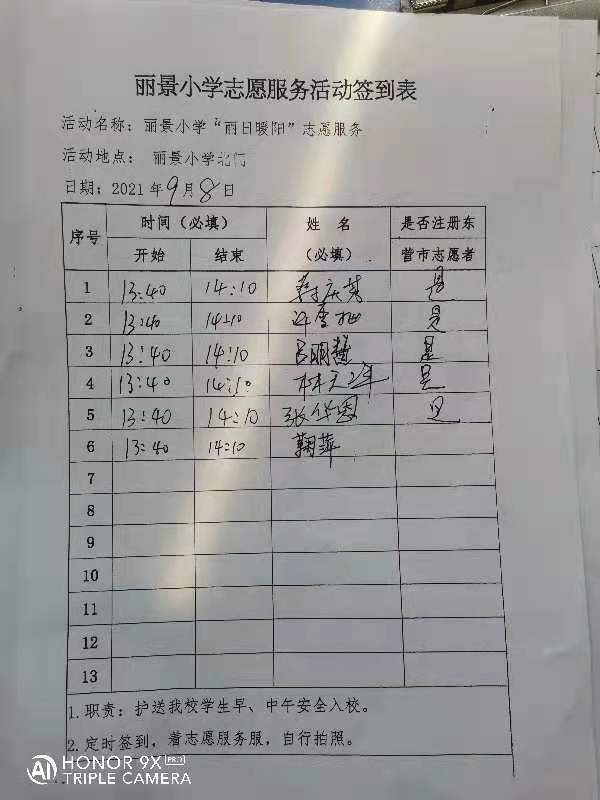 丽景小学志愿服务活动签到表
活动名称：丽景小学“雨日暖阳”志愿服务
活动地点： 丽景小学北门
日期：2021年9月8日
序号 时间（必填） 姓 名 是否注册东
开始 结束 （必填） 营市志愿者
1 13:40 14:10 庆英 是
2 13:40 14:10 是
3 13:40 14:10 吕丽慧 是
4 13:40 14:10 林天军 是
5 13:40 14:10 张华恩 是
6 13:40 14:10 鞠萍
7
8
9
10
11
12
13
1.职责：护送我校学生早、中午安全入校。
2.定时签到，着志愿服务服，自行拍照。
AI HONOR 9X PRO
TRIPLE CAMERA